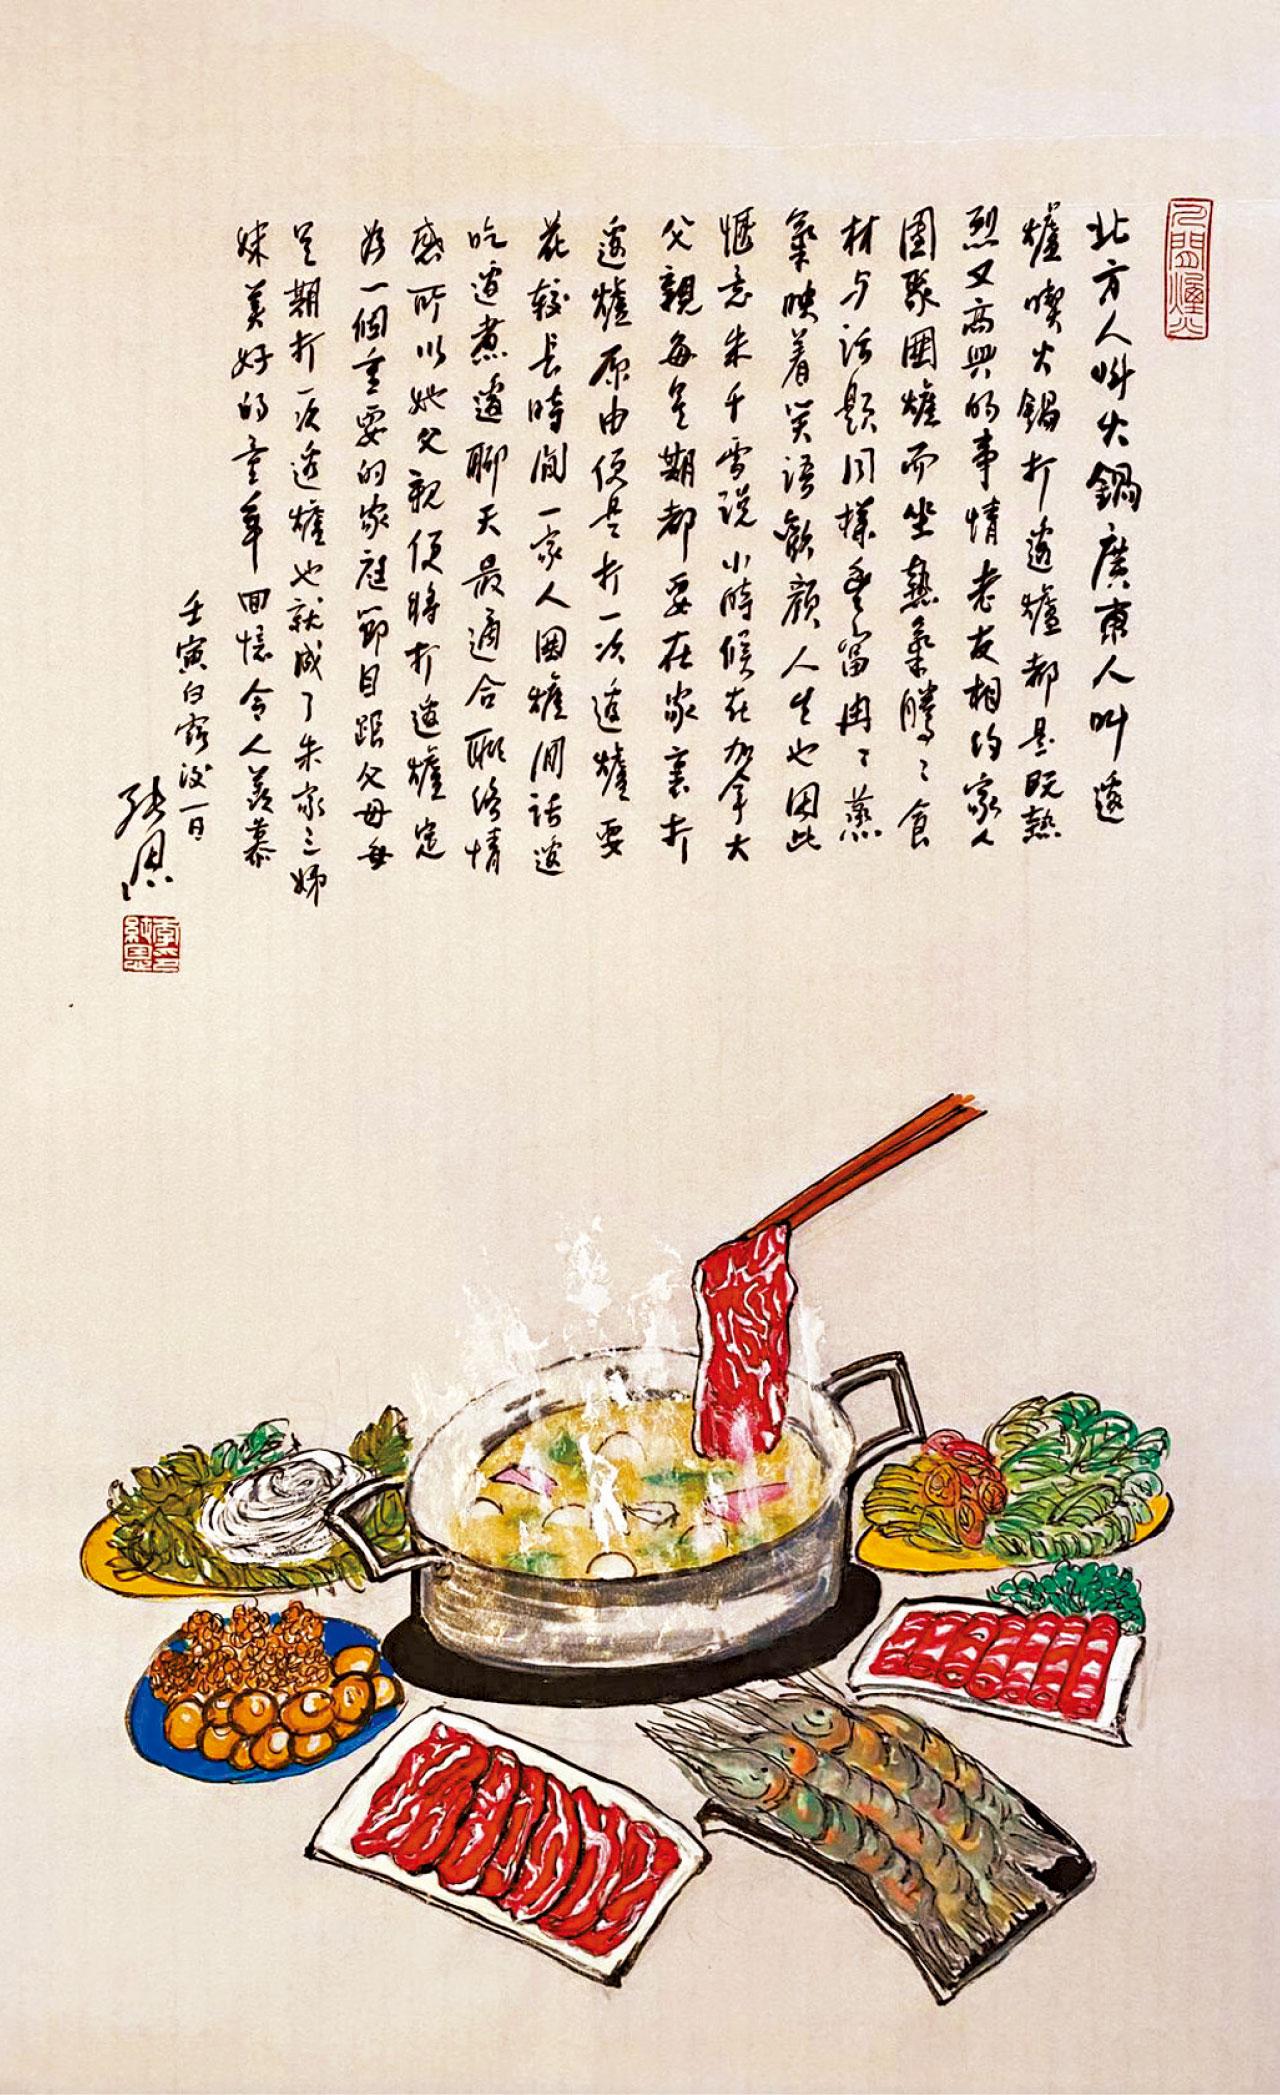 人間煙火
北方人叫火鍋廣東人叫邊
爐喫火鍋打邊爐都是既熱
烈又高興的事情老友相約家人
團聚圍爐而坐熱氣騰〻食
材与話題同樣豐富冉〻蒸
氣映着笑語歡顏人生也因此
愜意朱千雪說小時候在加拿大
父親每星期都要在家裏打
邊爐原由便是打一次邊爐要
花較長時間一家人圍爐閒話邊
吃邊煮邊聊天最適合聯絡情
感所以她父親便將打邊爐定
為一個重要的家庭節目跟父母每
星期打一次邊爐也就成了朱家三姊
妹美好的童年回憶令人羨慕
壬寅白露後一日
純恩
李純恩印